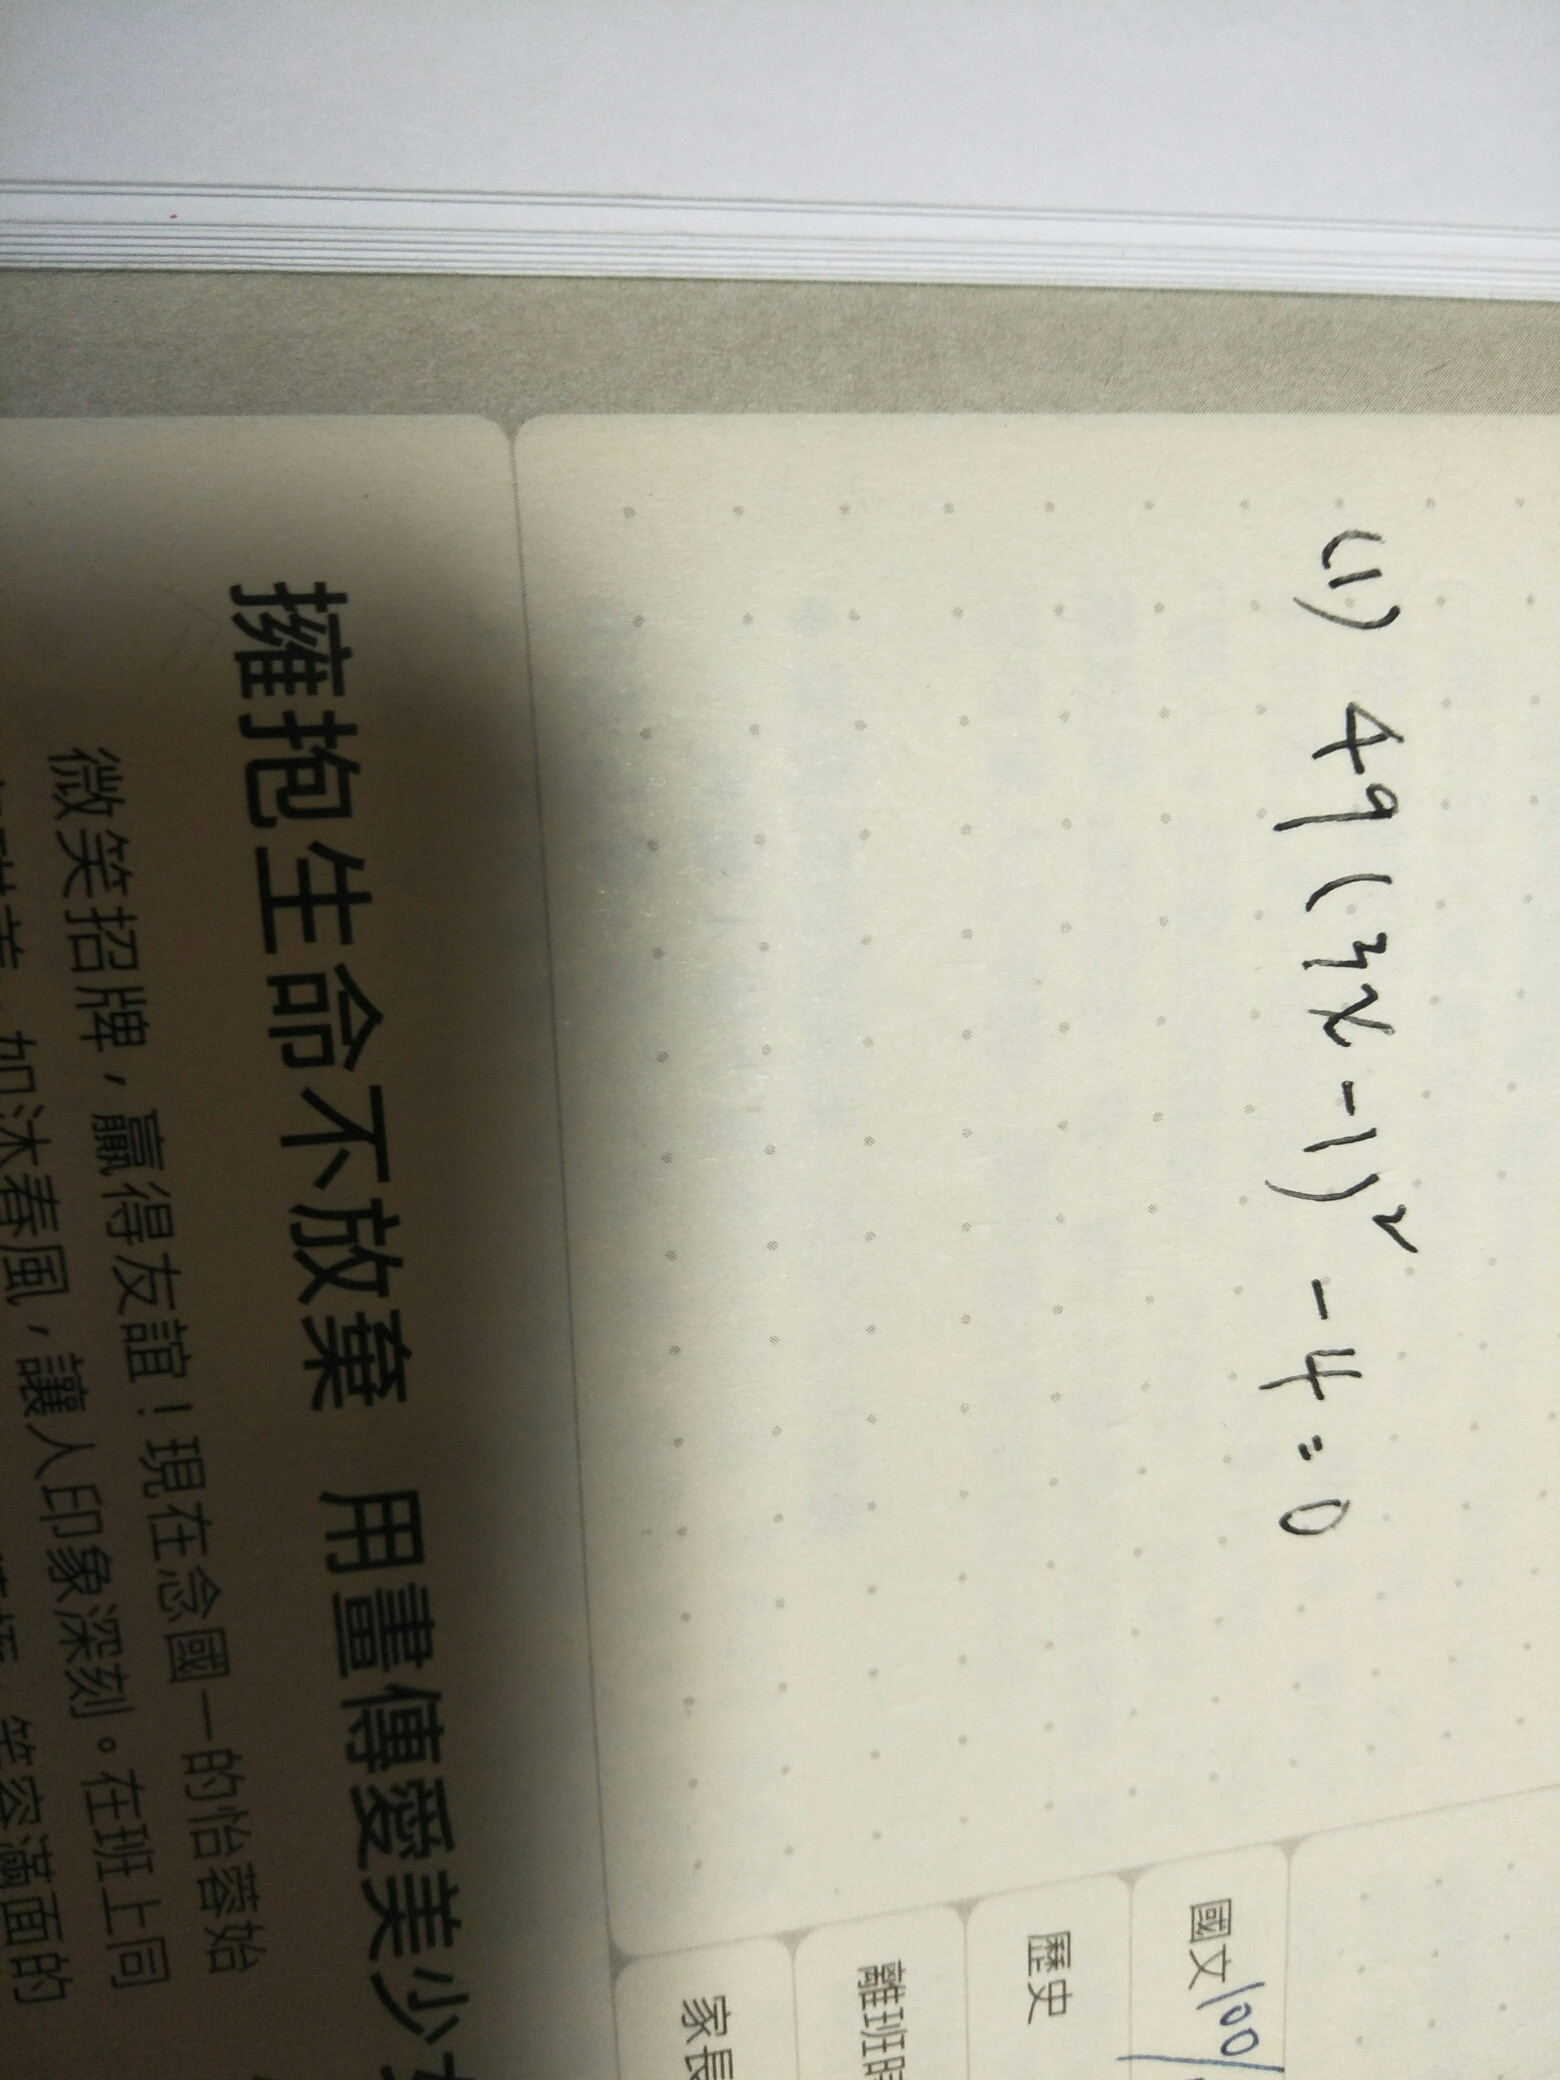 (1) 49(3x-1)² -4=0
國文 100/
歷史
離班時
家長
擁抱生命不放棄 用畫傳愛美少女
微笑招牌，贏得友誼！現在念國一的怡蓉始
如沐春風，讓人印象深刻。在班上同
笑容滿面的